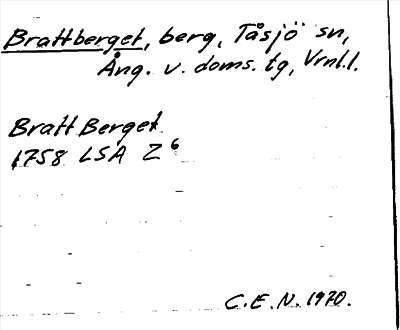 Brattberget, berg, Tåsjö sn,
Ång. v. doms. tg, Vrnl.l.
Bratt Berget
1758 LSA Z⁶
C.E.N. 1970.